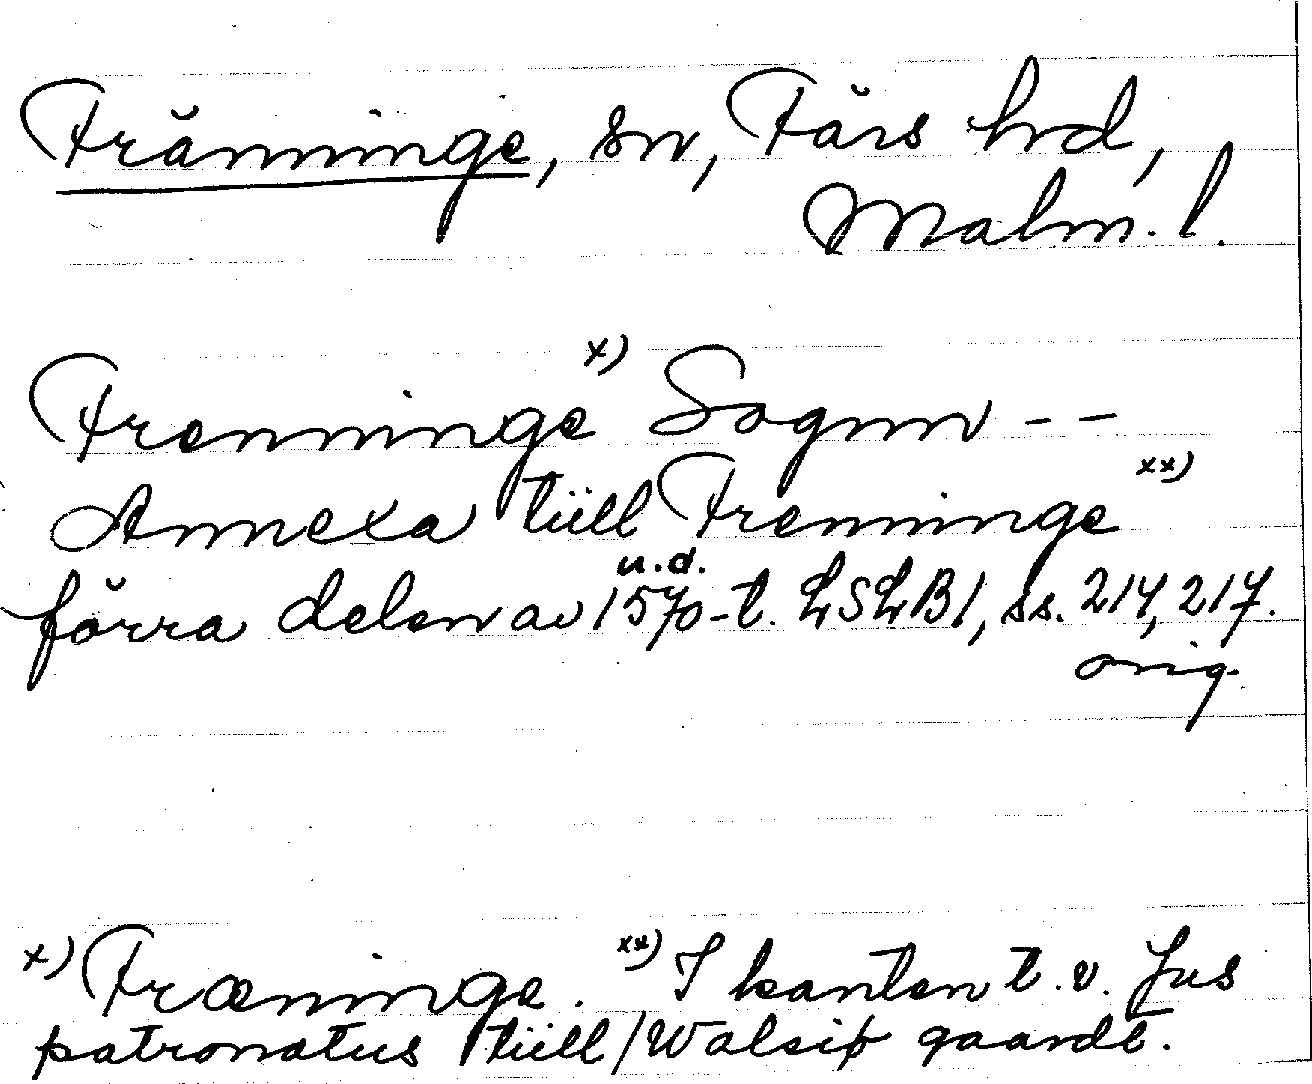 Fränninge, sn, Färs hrd,
Malm. l.
Frenninge x) Sognn - -
Annexa tiill Frenninge xx)
förra delen av 1570-t. u.d. LSLB1, ss. 214, 217.
orig.
x) Fræninge. xx) I kanten t.v. Jus
patronatus tiill / Walsiø gaardt.